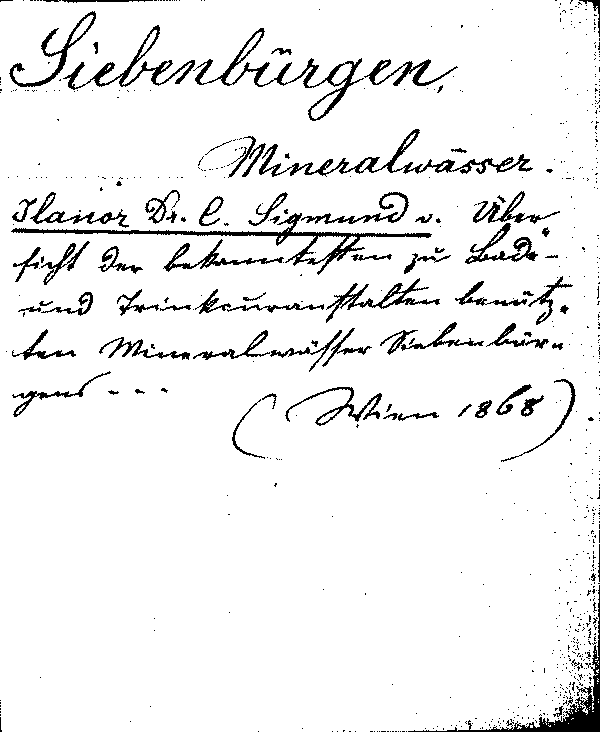 Siebenbürgen,
Mineralwässer.
Ilanor Dr. C. Sigmund v. Über
sicht der bekanntesten zu Bade-
und Trinkcuranstalten benütz-
ten Mineralwässer Siebenbür-
gens - - -
(Wien 1868).